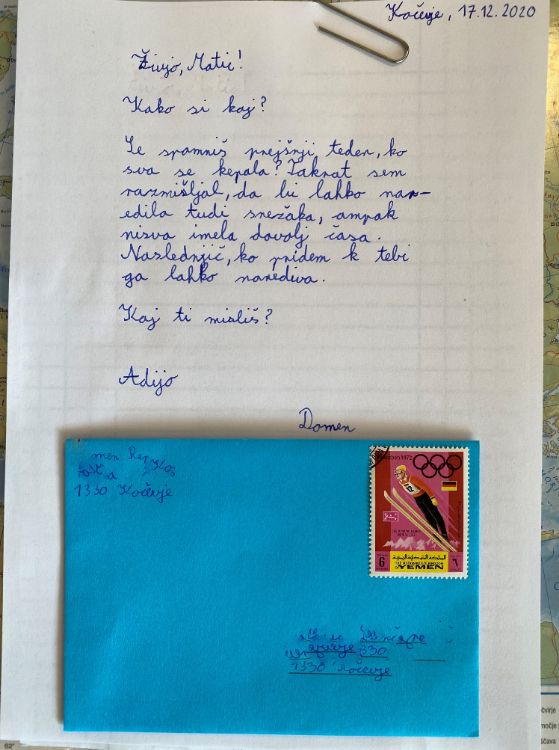 Kočevje, 17.12.2020
Živjo, Matic!
Kako si kaj?
Se spomniš prejšnji teden, ko
sva se kepala? Takrat sem
razmišljal, da bi lahko nar-
edila tudi snežaka, ampak
nisva imela dovolj časa.
Naslednjič, ko pridem k tebi
ga lahko narediva.
Kaj ti misliš?
Adijo
Domen
men
1330 Kočevje
6
YEMEN
1330 Kočevje